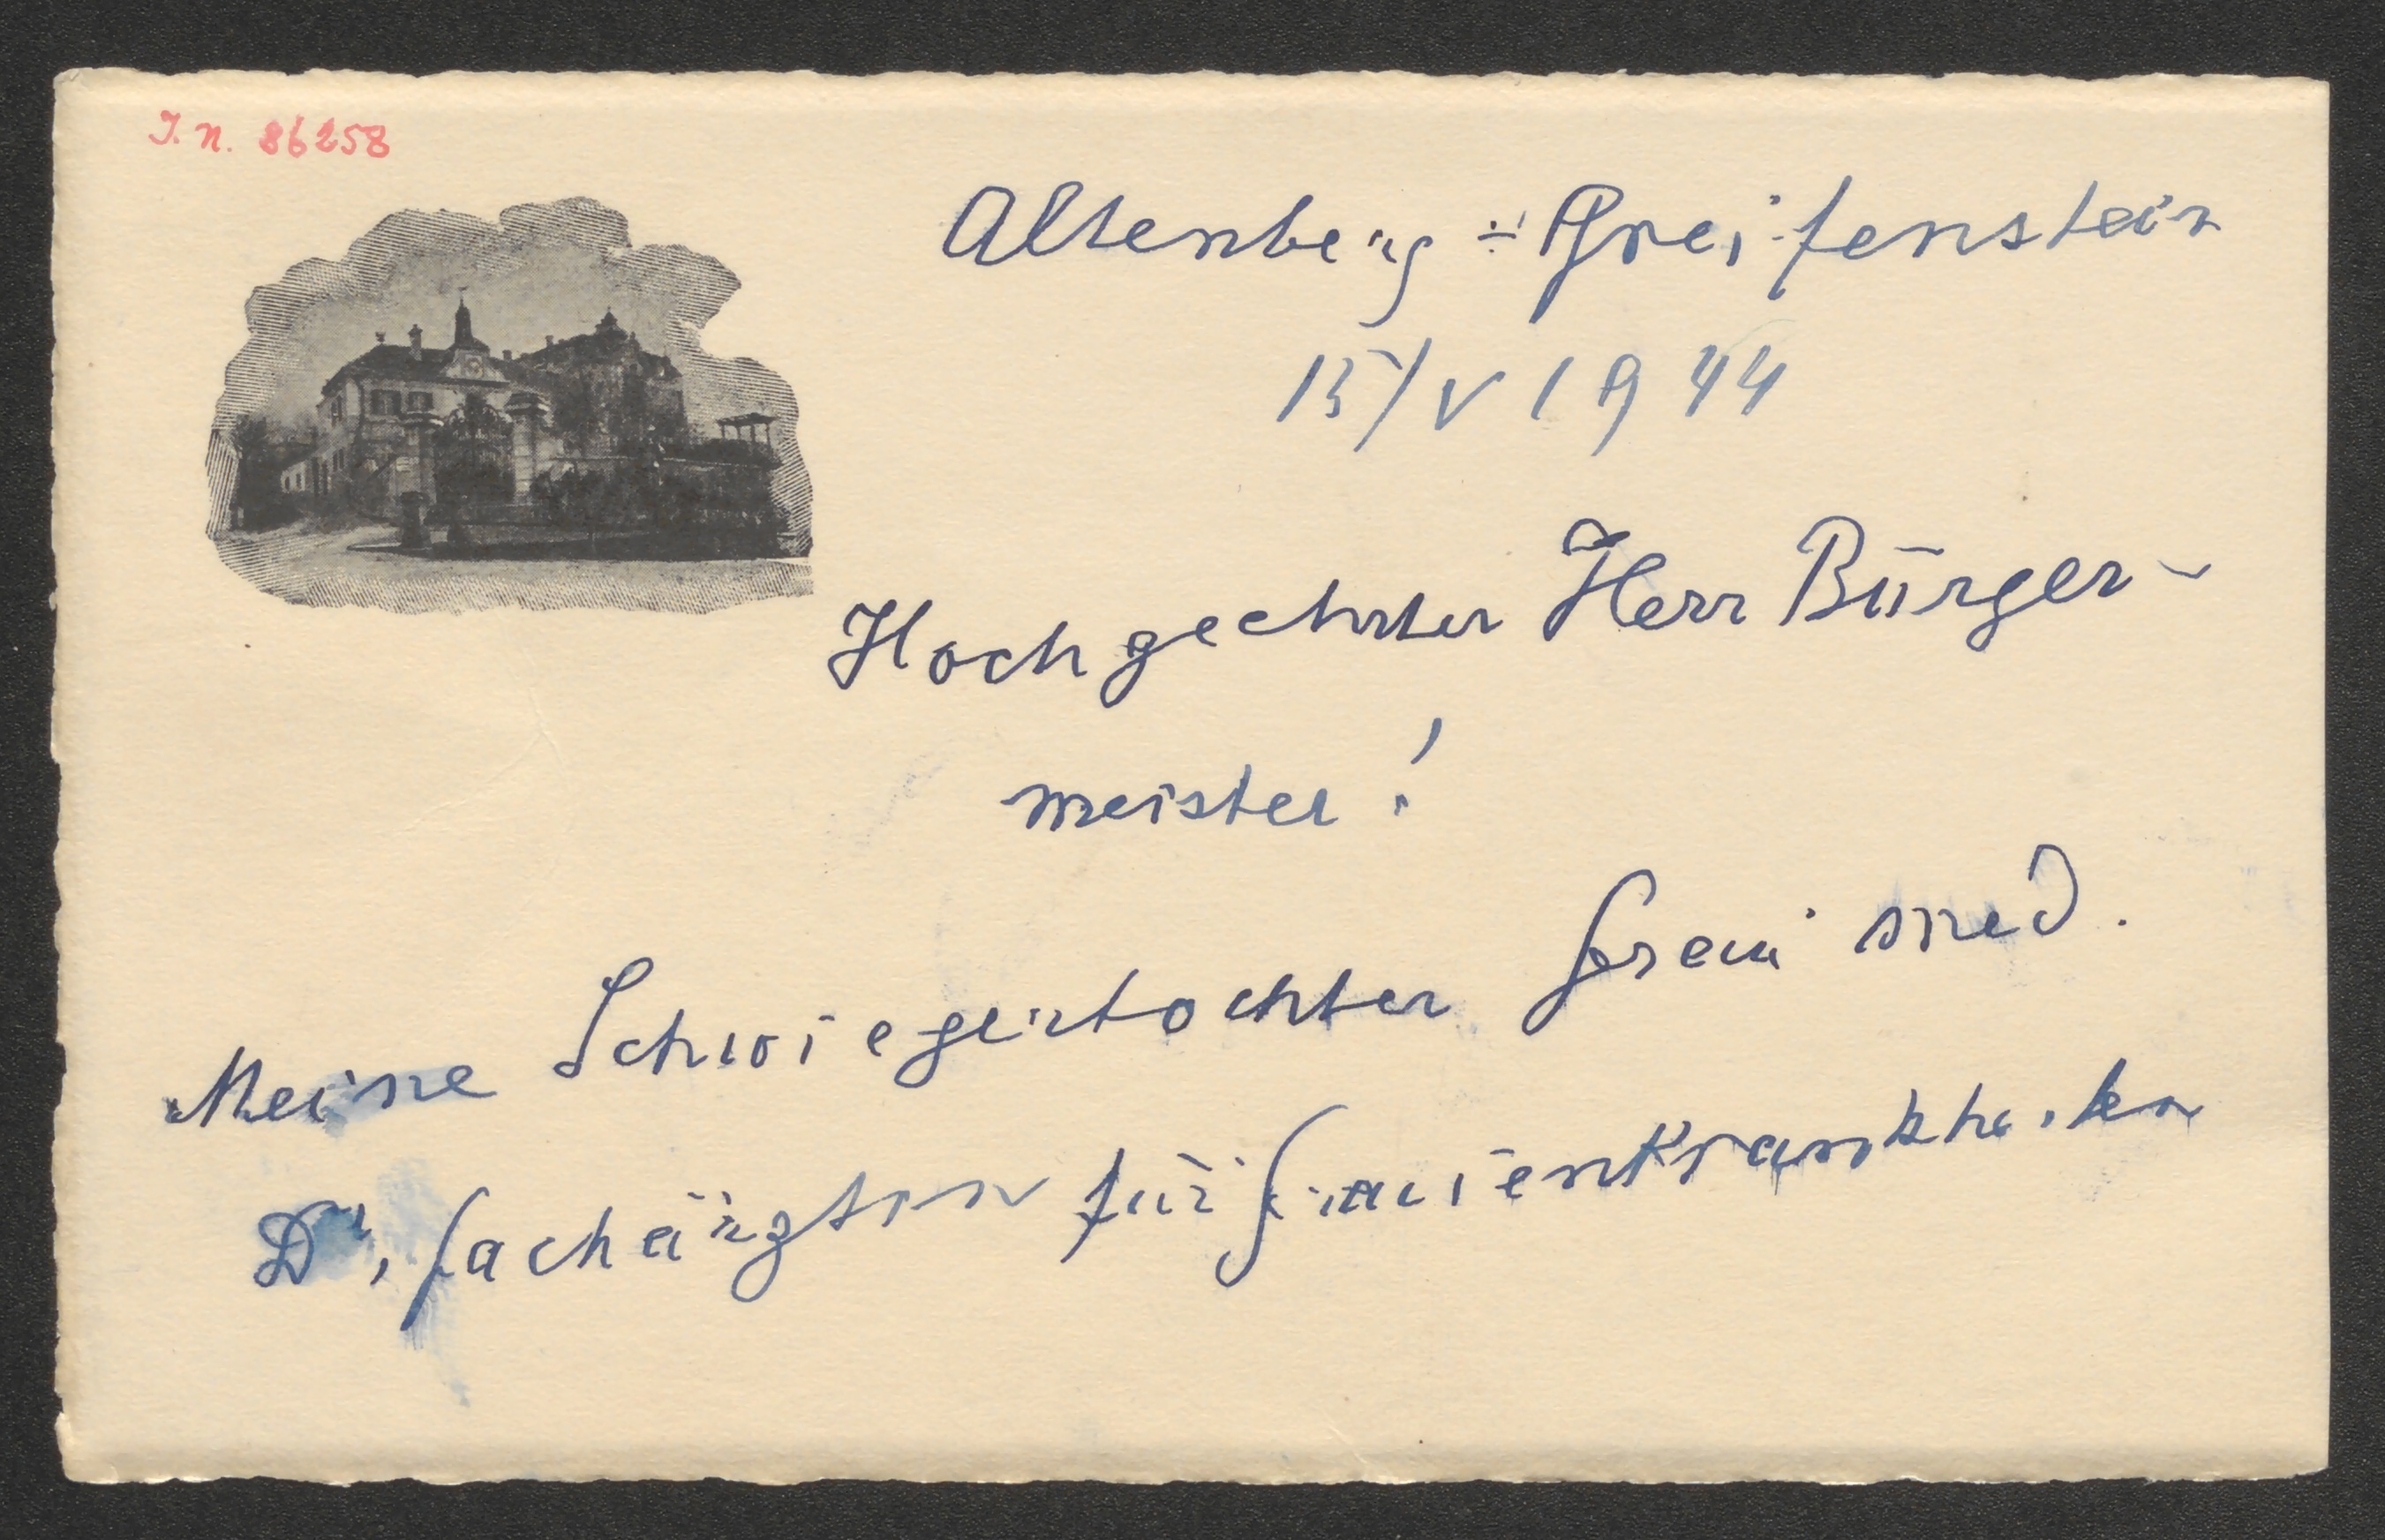 I. N. 86258
Altenberg-Greifenstein
15/V 1944
Hochgeehrter Herr Bürger-
meister!
Meine Schwiegertochter Frau med.
Dr, Fachärztin für Frauenkrankheiten